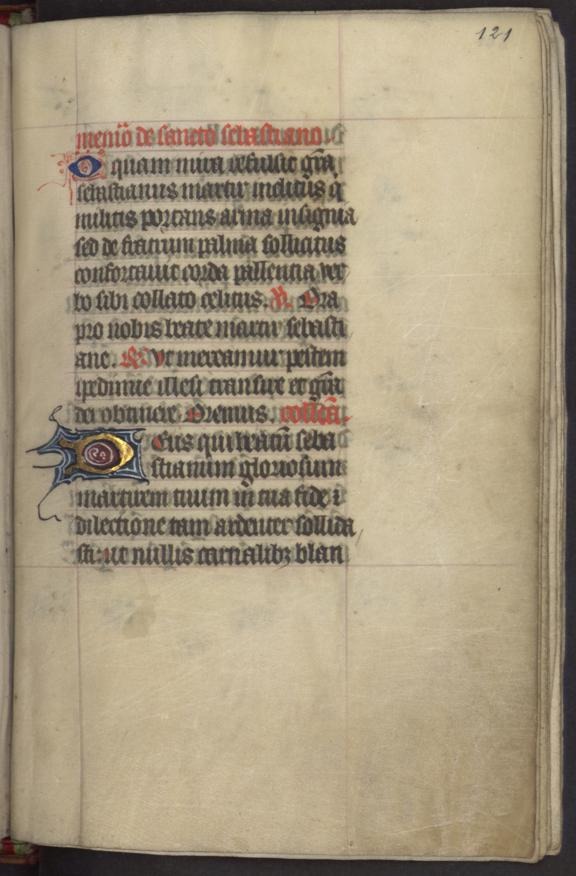 121
memō de sancto sebastiano.
O quam mira refulsit grā
sebastianus martir inclitus q̄
militis portans arma insignia
sed de fratrum palma sollicitus
confortauit corda pallencia ver
bo sibi collato celitus. V. Ora
pro nobis beate martir sebasti
ane. R. Vt mereamur pestem
ipedimie illesi transire et grām
dei obtinere. Oremus. collcā.
Deus qui beatū seba
stianum gloriosum
martirem tuum in tua fide ī
dilectione tam ardenter sollida
sti: ut nullis carnalibꝫ blan